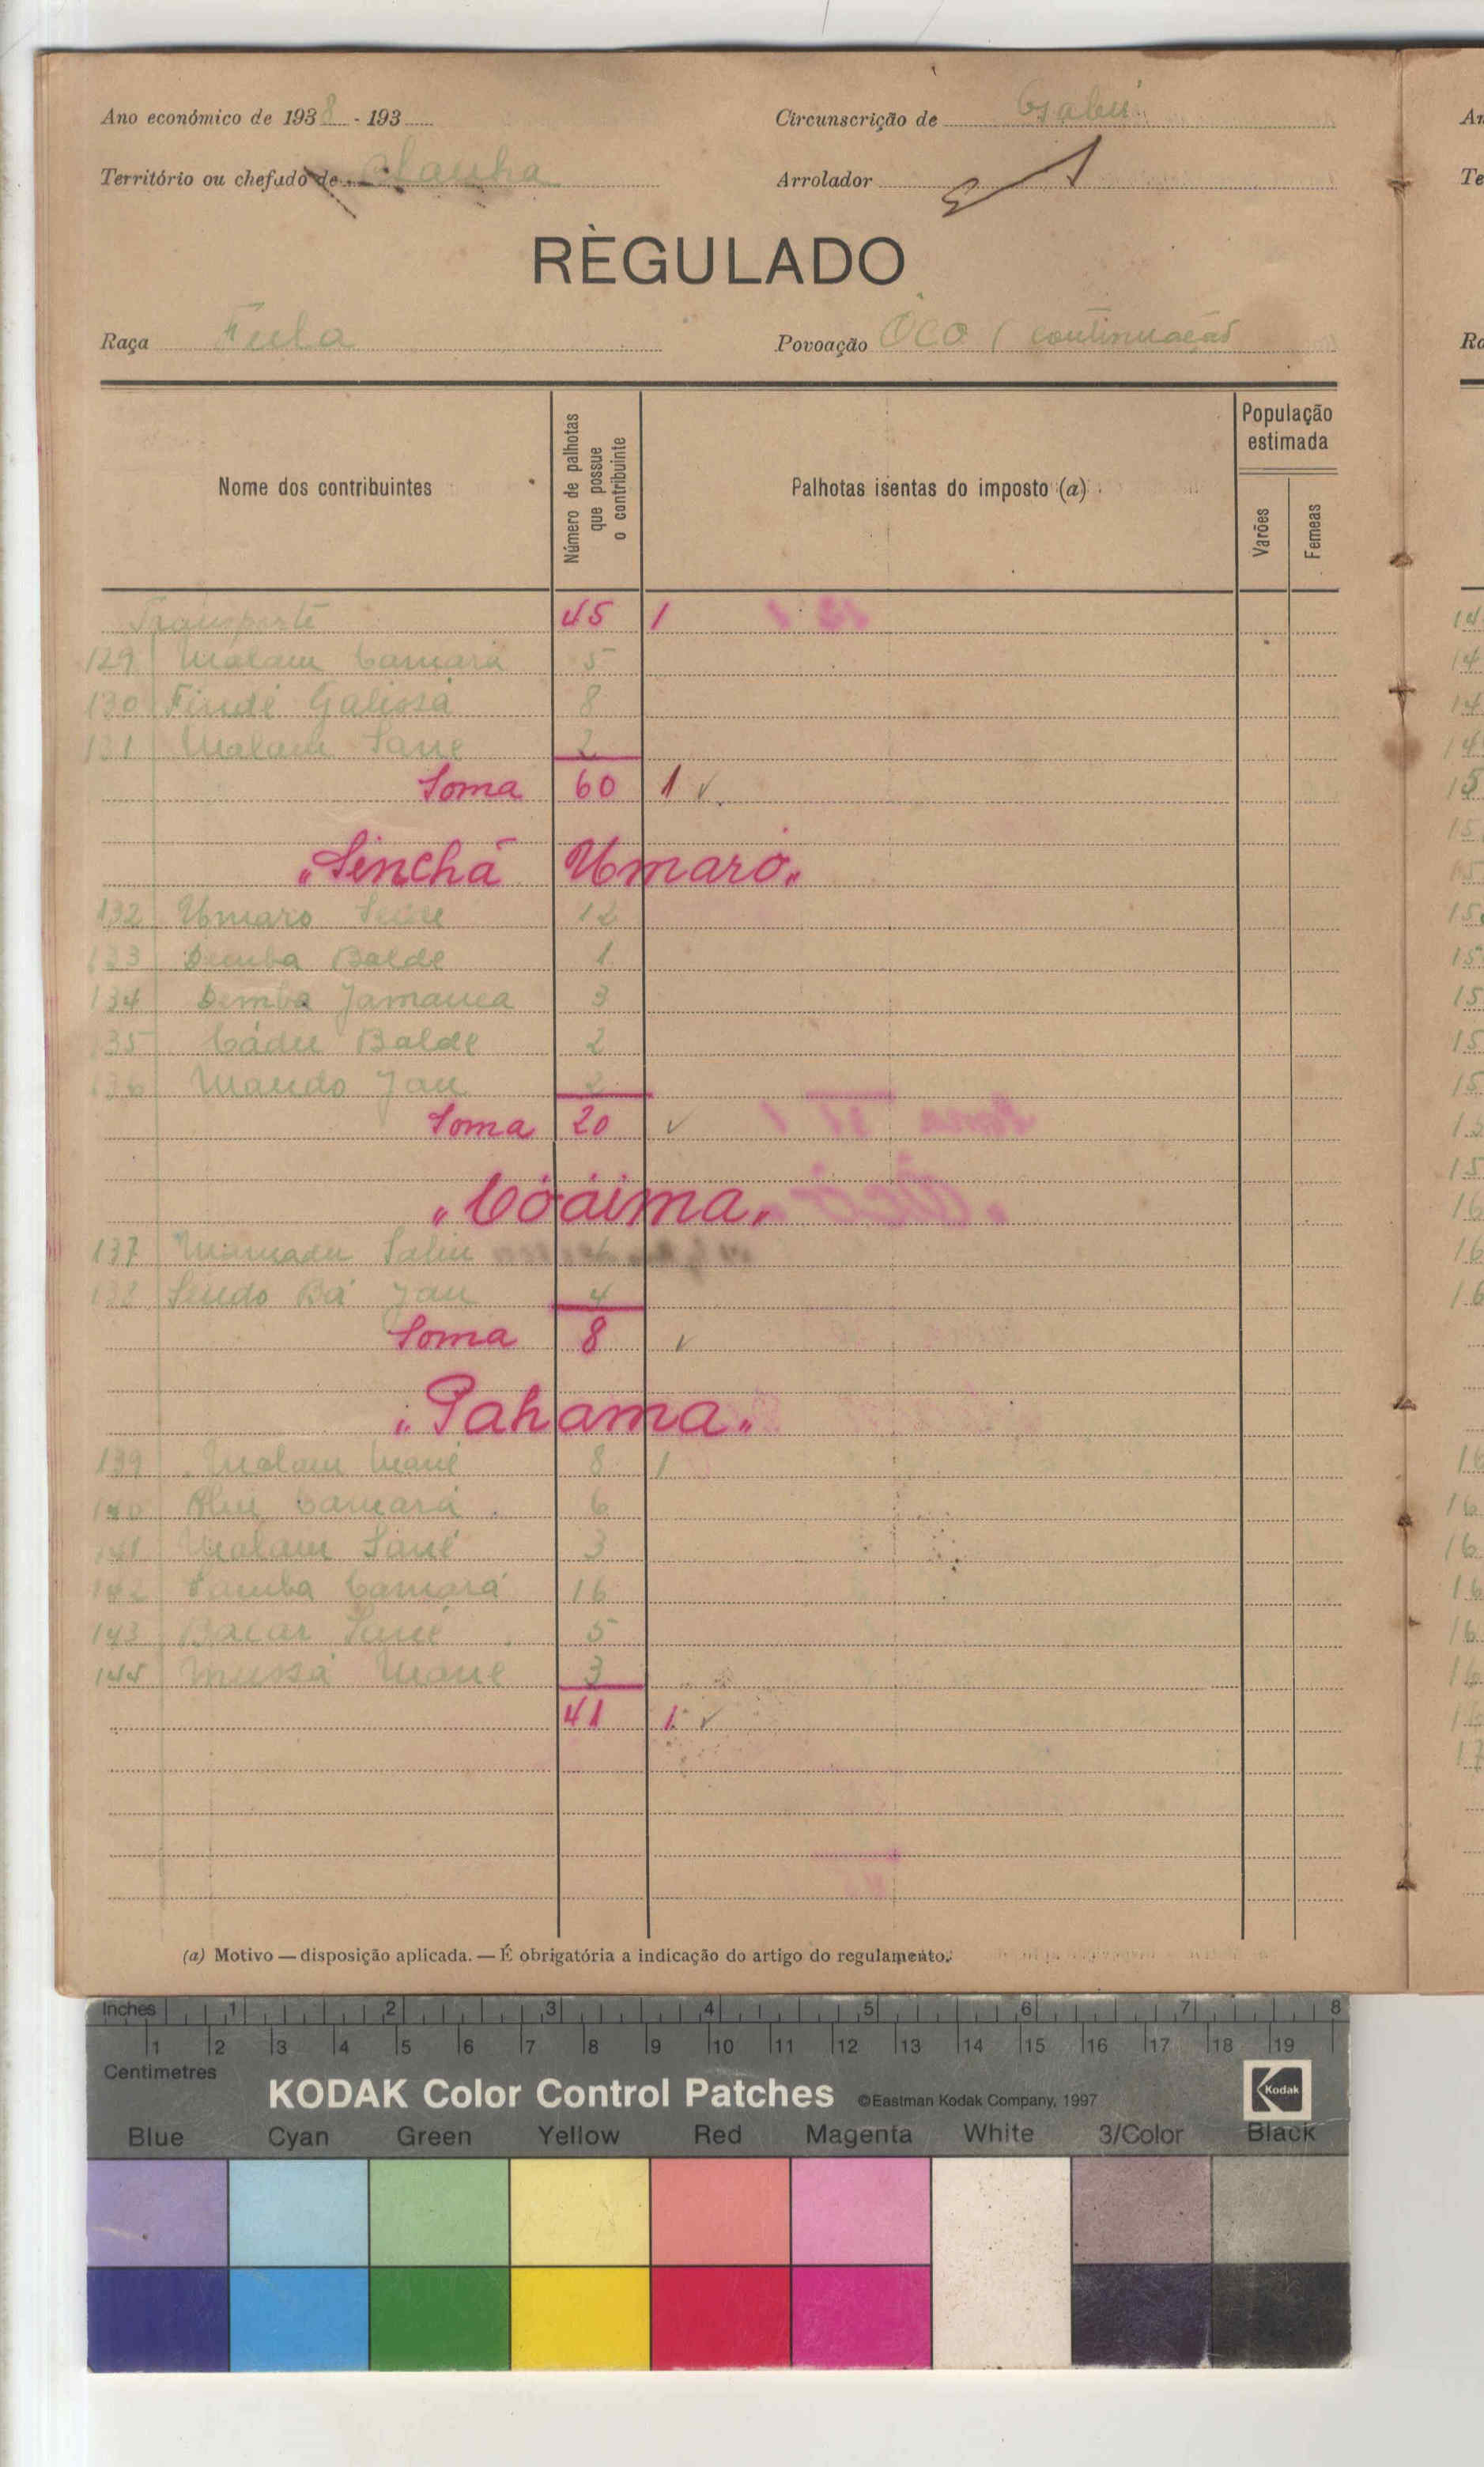 Ano económico de 1938 - 193
Circunscrição de Gabú
Território ou chefado de
Arrolador
RÈGULADO
Raça Fula
Povoação Ócó (continuação
Nome dos contribuintes
Número de palhotas que possue o contribuinte
Palhotas isentas do imposto (a)
População estimada
Varões
Femeas
Transporte 45 1
129 Malam Camará 5
130 Findé Galissá 8
131 Malam Sané 2
Soma 60 1 ✓
"Sinchá Umaro"
132 Umaro 12
133 Demba Balde 1
134 Demba Jamanca 3
135 Cádu Balde 2
136 Mando Jau 2
Soma 20 ✓
"Cóáima"
137 Mamadu Saliu
138 Sendo Bá Jau 4
Soma 8 ✓
"Pahama"
139 Malam Mané 8 1
140 Camará 6
141 Malam Sané 3
142 Samba Camará 16
143 Bacar Sané 5
144 Mussá Mané 3
41 1 ✓
(a) Motivo — disposição aplicada. — É obrigatória a indicação do artigo do regulamento.
Inches 1 2 3 4 5 6 7 8
1 2 3 4 5 6 7 8 9 10 11 12 13 14 15 16 17 18 19
Centimetres
KODAK Color Control Patches ©Eastman Kodak Company, 1997 Kodak
Blue Cyan Green Yellow Red Magenta White 3/Color Black